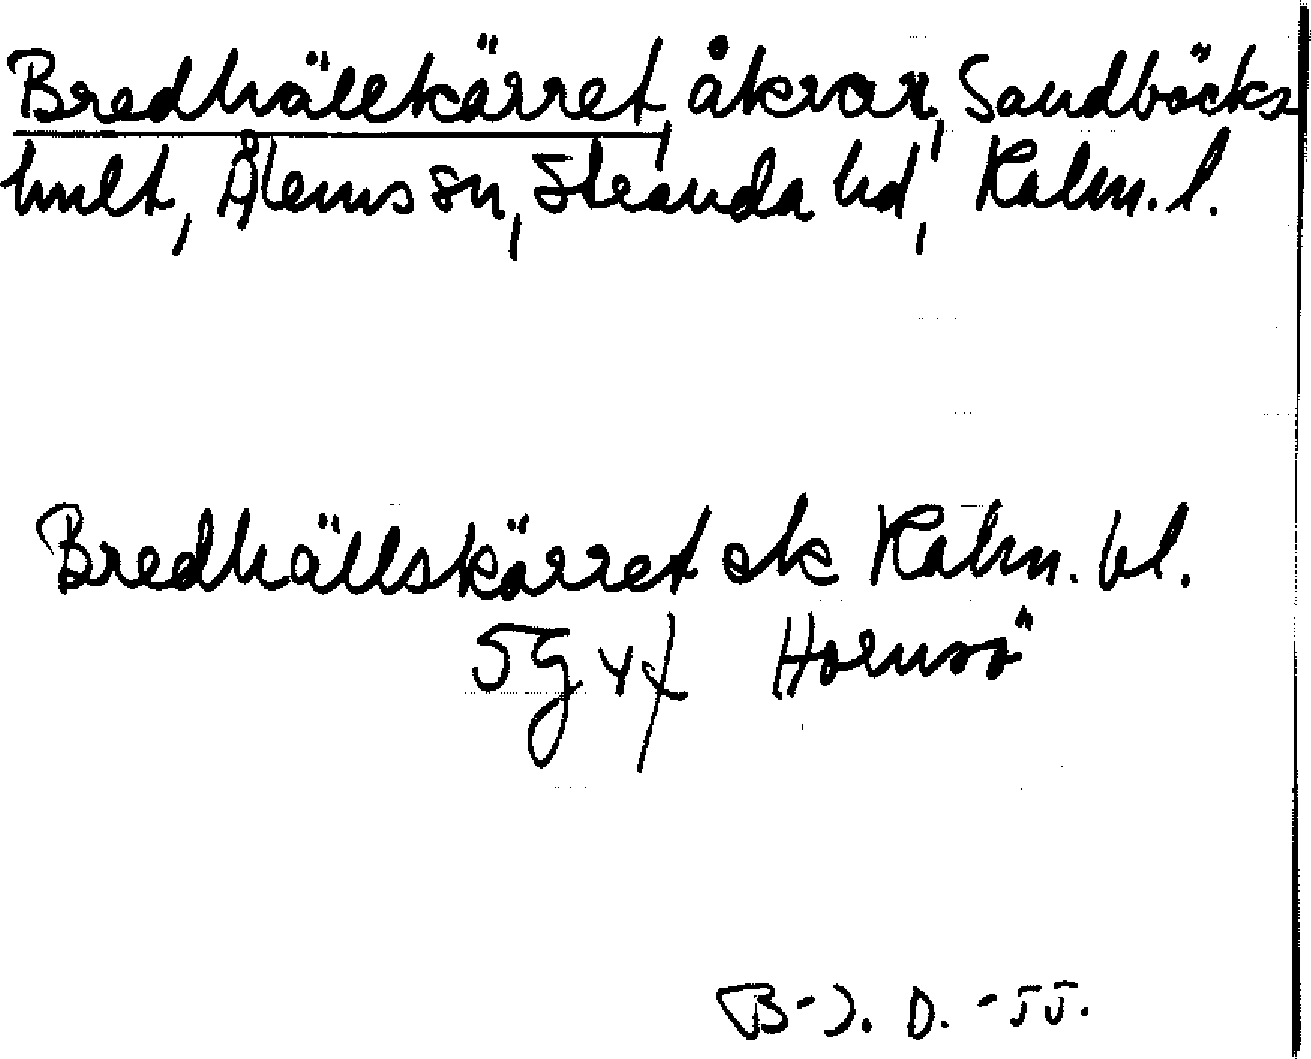 Bredhällkärret, åkrar, Sandbäcks
hult, Ålems sn, Stranda hd, Kalm. l.
Bredhällskärret ek Kalm. bl.
5g Hornsö
B-J. D. -55.